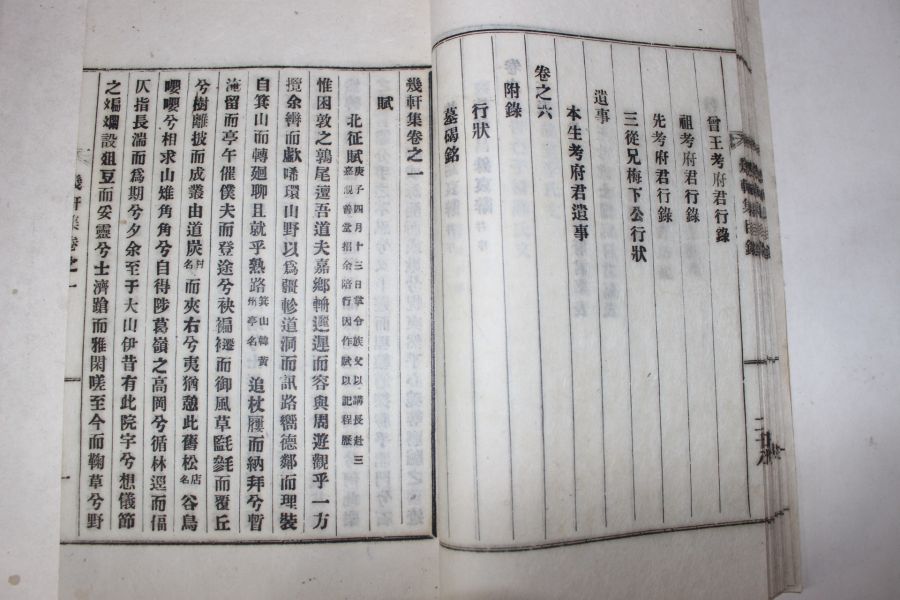 曾王考府君行錄
祖考府君行錄
先考府君行錄
三從兄梅下公行狀
遺事
本生考府君遺事
卷之六
附錄
行狀
墓碣銘
幾軒集卷之一
賦
北征賦庚子四月十三日掌令族父以講長赴三嘉觀善堂招余陪行因作賦以記程歷
惟困敦之鶉尾亶吾道夫嘉鄉輸遲遲而容與周遊觀乎一方
攬余轡而歔唏環山野以爲疆軫道洞而訊路嚮德鄰而理裝
自箕山而轉廻聊且就乎熟路箕山韓黃州亭名追杖屨而納拜兮暫
淹留而亭午催僕夫而登途兮袂褊褼而御風草毿毿而覆丘
兮樹離披而成叢由道炭村名而夾右兮夷猶憩此舊松店名谷鳥
嚶嚶兮相求山雉角角兮自得陟葛嶺之高岡兮循林逕而偪
仄指長湍而爲期兮夕余至于大山伊昔有此院宇兮想儀節
之斒斕設俎豆而妥靈兮士濟蹌而雅閑嗟至今而鞠草兮野
幾軒集卷之一
一